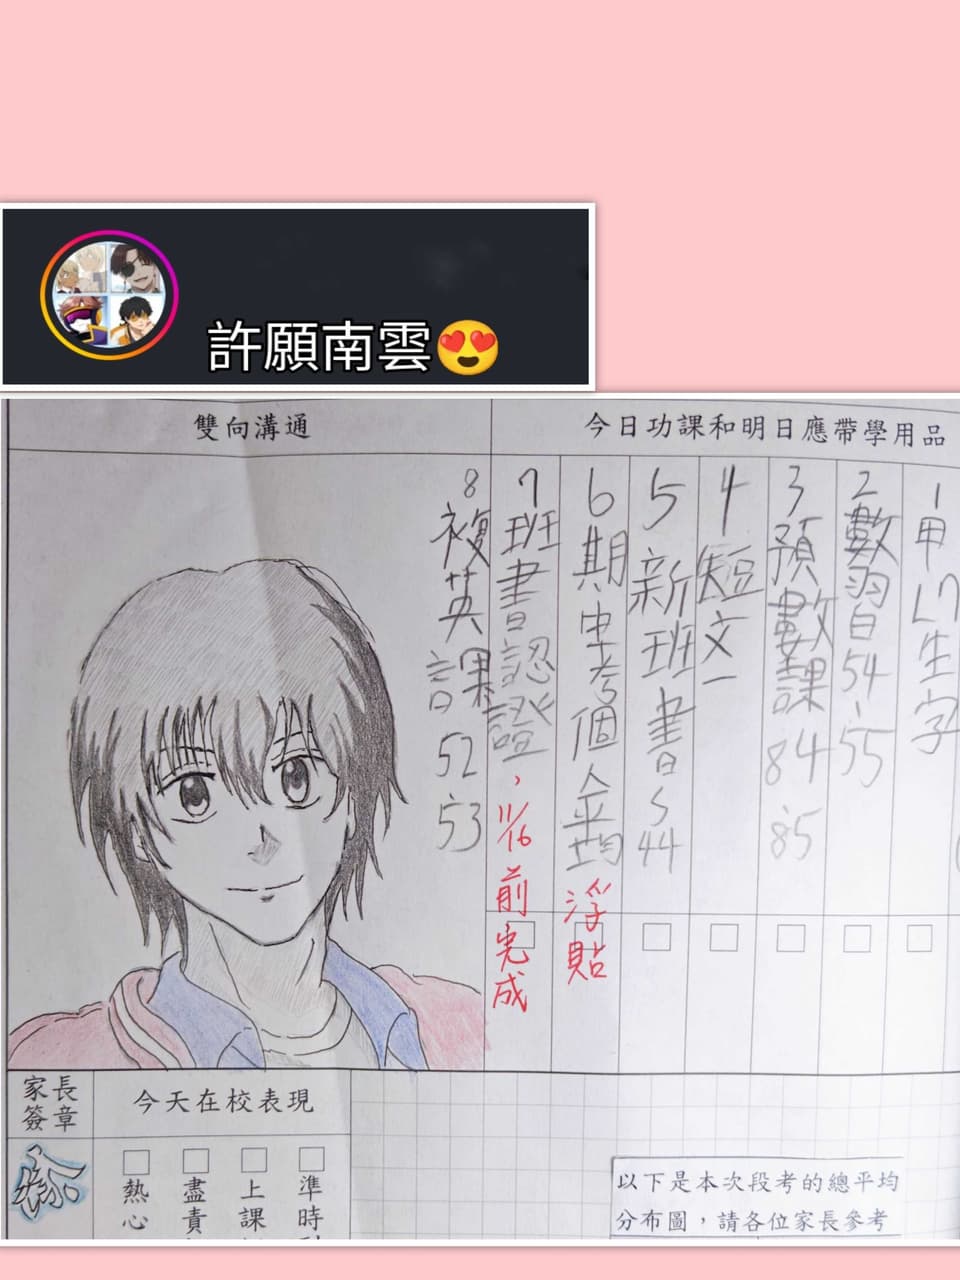 許願南雲😍
雙向溝通
今日功課和明日應帶學用品
1甲L7生字
2數習白54、55
3預數課84、85
4短文一
5新班書S44
6期中考個人平均浮貼
7班書認證,11/16前完成
8複英課52、53
家長簽章
今天在校表現
準時
上課
盡責
熱心
以下是本次段考的總平均
分布圖,請各位家長參考